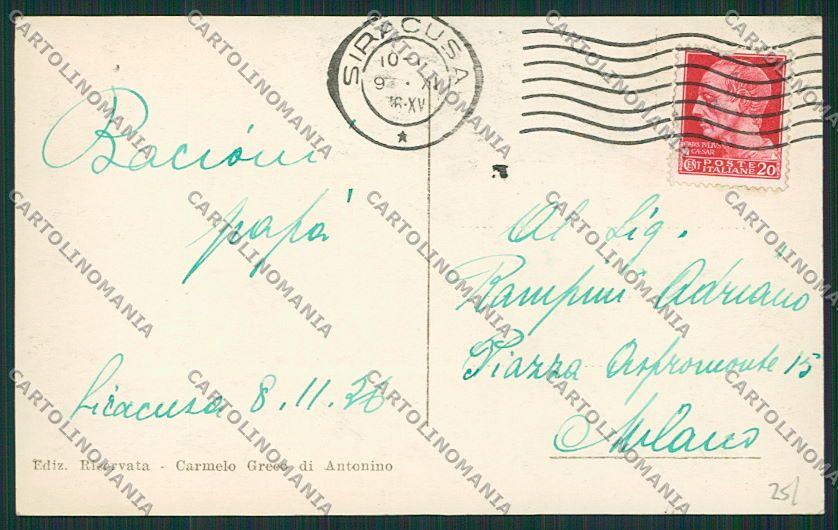 SIRACUSA
10-
9 · XI
36-XV
CAIVS IVLIVS
CAESAR
CENT POSTE ITALIANE 20
Bacioni
papà
Siracusa 8.11.36
Al Sig.
Rampini Adriano
Piazza Aspromonte 15
Milano
Ediz. Riservata - Carmelo Greco di Antonino
25/
CARTOLINOMANIA